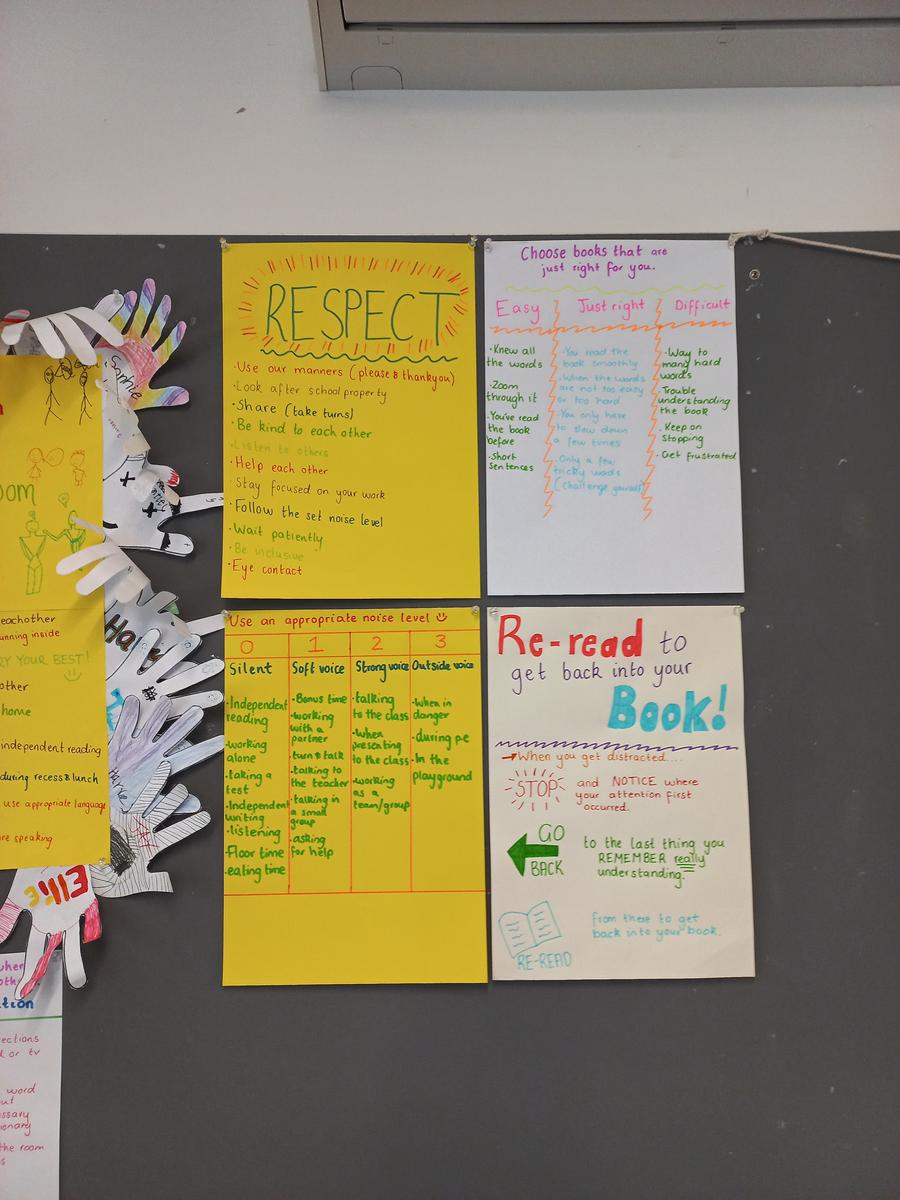 RESPECT
·Use our manners (please & thankyou)
·Look after school property
·Share (take turns)
·Be kind to each other
·Listen to others
·Help each other
·Stay focused on your work
·Follow the set noise level
·Wait patiently
·Be inclusive
·Eye contact
Choose books that are
just right for you.
Easy
·Knew all
the words
·Zoom
through it
·You've read
the book
before
·Short
sentences
Just right
·You read the
book smoothly
·When the words
are not too easy
or too hard
·You only have
to slow down
a few times
·Only a few
tricky words
(challenge yourself)
Difficult
·Way to
many hard
words
·Trouble
understanding
the book
·Keep on
stopping
·Get frustrated
Use an appropriate noise level
0
Silent
·Independent
reading
·working
alone
·taking a
test
·Independent
writing
·listening
·Floor time
·eating time
1
Soft voice
·Bonus time
·working
with a
partner
·turn & talk
·talking to
the teacher
·talking in
a small
group
·asking
for help
2
Strong voice
·talking
to the class
·When
presenting
to the class
·working
as a
team/group
3
Outside voice
·When in
danger
·during pe
·In the
playground
Re-read to
get back into your
Book!
→When you get distracted....
STOP
and NOTICE where
your attention first
occurred.
GO
BACK
to the last thing you
REMEMBER really
understanding.
RE-READ
from there to get
back into your book.
Sophie
oom
eachother
unning inside
RY YOUR BEST!
other
home
independent reading
during recess & lunch
use appropriate language
re speaking
Harvie
Elke
when
oth
ation
rections
d or tv
word
out
ssary
ionary
the room
s